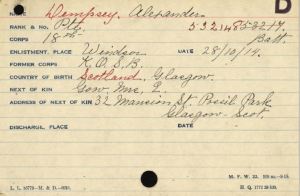 D
Dempsey, Alexander.
RANK & NO. Pte. 53214 858217
CORPS 18th Batt.
ENLISTMENT, PLACE Windsor DATE 28/10/14.
FORMER CORPS K.O.S.B.
COUNTRY OF BIRTH Scotland, Glasgow.
NEXT OF KIN Gow, Mrs. E.
ADDRESS OF NEXT OF KIN 32 Mansion St. Possil Park
Glasgow - Scot.
DISCHARGE, PLACE DATE
M. F. W. 22.
L. L. 10773-M. & D.
H. Q. 1772 39 839.